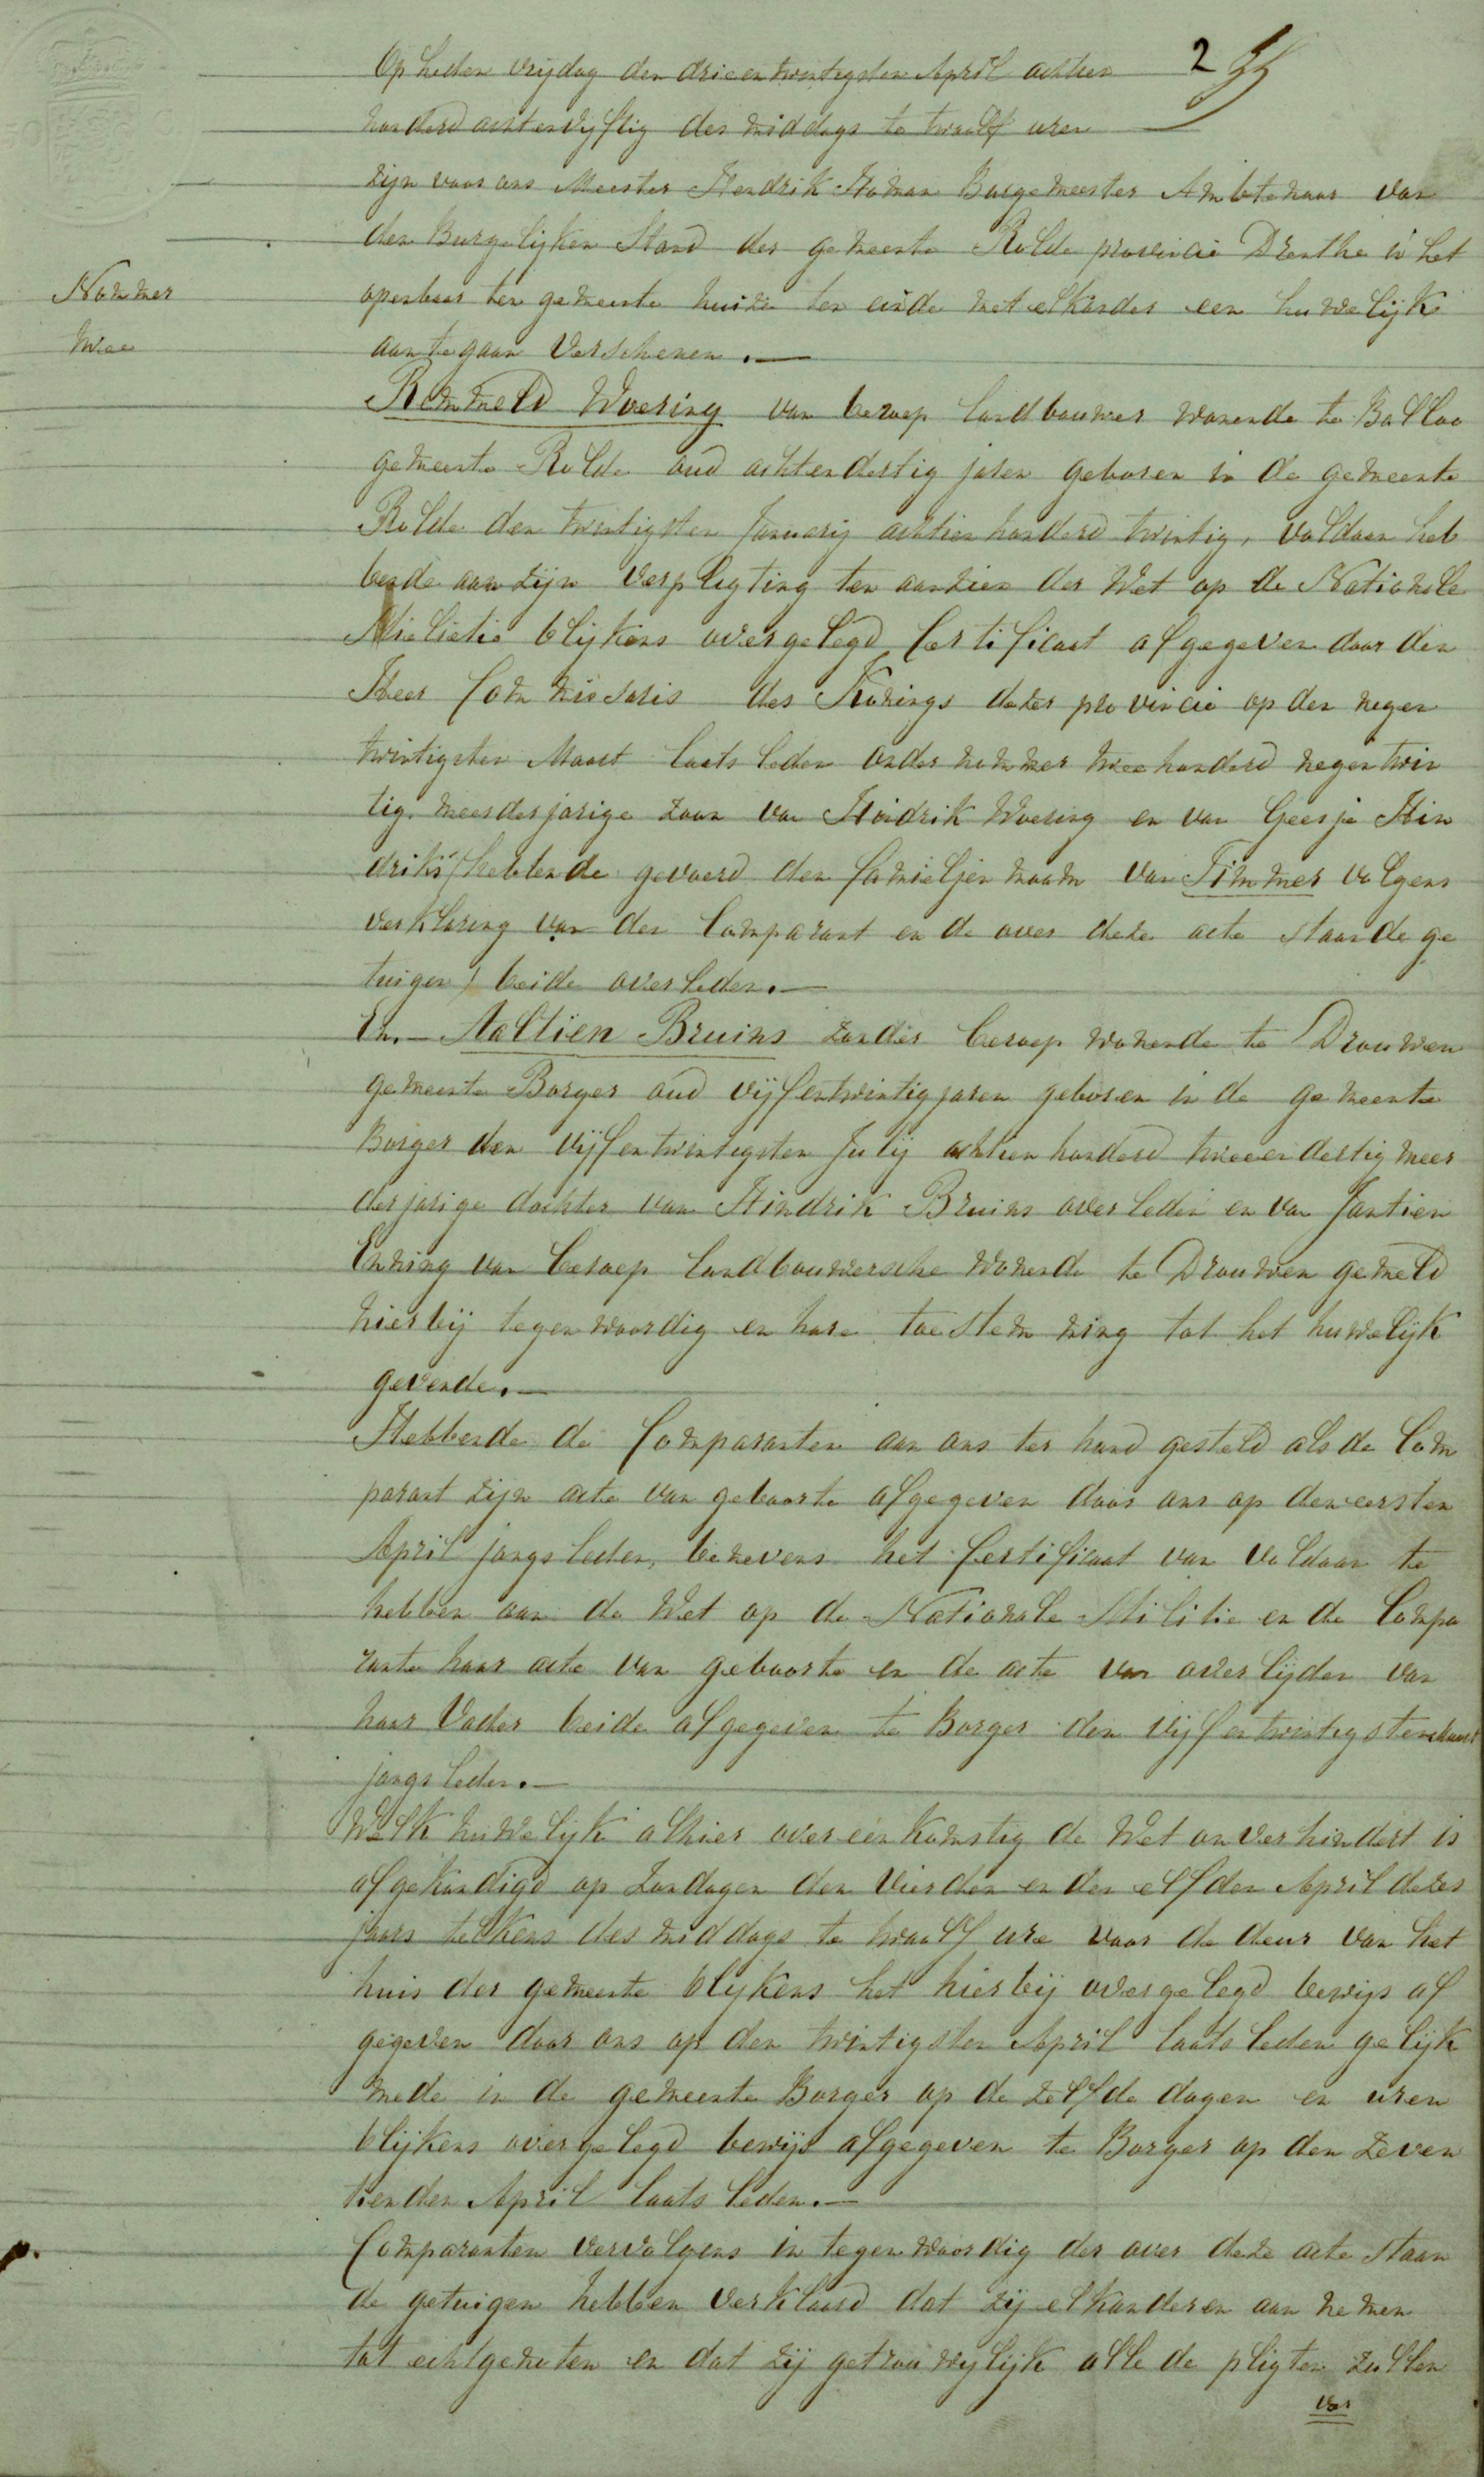 2
Op heden vrijdag den drieentwintigsten April achtien
honderd achtenvijftig des middags te twaalf uren
zijn voor ons Meester Hendrik Homan Burgemeester Ambtenaar van
den Burgelijken Stand der gemeente Rolde provincie Drenthe in het
Nommer
openbaar ten gemeente huize ten einde met elkander een huwelijk
twee
aan te gaan verschenen.—
Remmeld Woering van beroep landbouwer wonende te Balloo
gemeente Rolde oud achtendertig jaren geboren in de gemeente
Rolde den twintigsten Januarij achtien honderd twintig, voldaan heb
bende aan zijn verpligting ten aanzien der Wet op de Nationale
Mielietie blijkens overgelegd Certificaat afgegeven door den
Heer Commissaris des Konings dezer provincie op den negen
twintigsten Maart laatsleden onder nommer twee honderd negentwin
tig, meerderjarige zoon van Hindrik Woering en van Geesje Hin
driks (hebbende gevoerd den familjen naam van Timmer volgens
verklaring van den Comparant en de over deze acte staande ge
tuigen) beide overleden.—
En.— Aaltien Bruins zonder beroep wonende te Drouwen
gemeente Borger oud vijfentwintig jaren geboren in de gemeente
Borger den vijfentwintigsten Julij achtien honderd tweeendertig meer
derjarige dochter van Hindrik Bruins overleden en van Jantien
Enning van beroep landbouwersche wonende te Drouwen gemeld
hierbij tegenwoordig en hare toestemming tot het huwelijk
gevende.—
Hebbende de Comparanten aan ons ter hand gesteld als de Com
parant zijn acte van geboorte afgegeven door ons op den eersten
April jongsleden, benevens het Certificaat van voldaan te
hebben aan de Wet op de Nationale Militie en de Compa
rante haar acte van geboorte en de acte van overlijden van
haar Vader beide afgegeven te Borger den vijfentwintigsten Maart
jongsleden.—
Welk huwelijk alhier overeenkomstig de Wet onverhindert is
afgekondigd op Zondagen den Vierden en den elfden April dezes
jaars telkens des middags te twaalf ure voor de deur van het
huis der gemeente blijkens het hierbij overgelegd bewijs af
gegeven door ons op den twintigsten April laatsleden gelijk
mede in de gemeente Borger op de zelfde dagen en uren
blijkens overgelegd bewijs afgegeven te Borger op den zeven
tienden April laatsleden.—
Comparanten vervolgens in tegenwoordig der over deze acte staan
de getuigen hebben verklaard dat zij elkanderen aannemen
tot echtgenoten en dat zij getrouwelijk alle de pligten zullen
ver